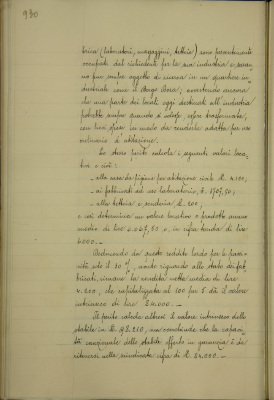 930
brica (laboratori, magazzini, tettoie) sono presentemente
occupati dal richiedente per la sua industria e saran-
no pur sempre oggetto di ricerca in un quartiere in-
dustriale come il Borgo Dora; avvertendo ancora
che una parte dei locali oggi destinati all'industria
potrebbe sempre quando si volesse essere trasformata,
con lievi spese in modo da renderla adatta per uso
ordinario di abitazione.
Lo stesso perito valuta i seguenti valori loca-
tivi e cioè:
- alla casa da pigione per abitazione civile L. 4.100,
- ai fabbricati ad uso laboratorio, L. 1767,50;
- alla tettoia e scuderia L. 200;
e così determina un valore locativo o prodotto annuo
medio di lire 6.067,50 e, in cifra tonda di lire
6000. -
Deducendo da questo reddito lordo per le passi-
vità solo il 30 %, avuto riguardo allo stato dei fab-
bricati, rimane la rendita netta annua di lire
4.200, che capitalizzata al 100 per 5 dà il valore
intrinseco di lire 84.000. -
Il perito calcola altresì il valore intrinseco dello
stabile in L. 98.210, ma conchiude che la capaci-
tà cauzionale dello stabile offerto in garanzia è da
ritenersi nella arrotondata cifra di L. 84.000. -